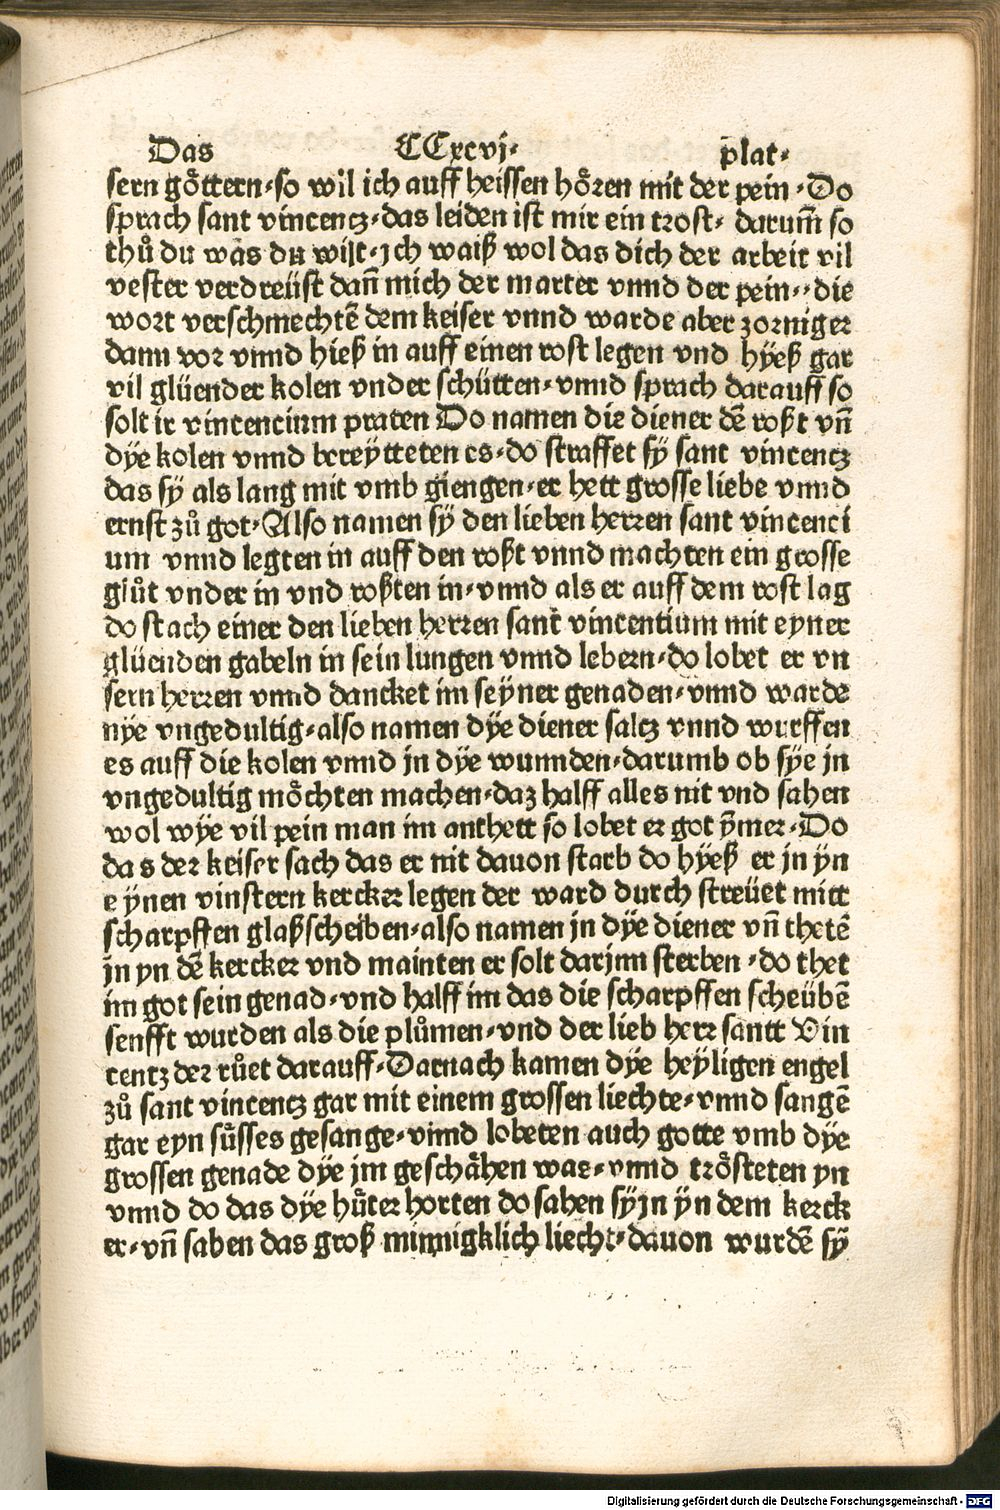 Das CCxcvj· plat·
sern göttern·so wil ich auff heissen hören mit der pein·Do
sprach sant vincencz·das leiden ist mir ein trost· darum̃ so
thů du was du wilt·jch waiß wol das dich der arbeit vil
vester verdreüst dañ mich der marter vnnd der pein··die
wort verschmechtẽ dem keiser vnnd warde aber zorniger
dann vor vnnd hieß in auff einen rost legen vnd hÿeß gar
vil glüender kolen vnder schütten·vnnd sprach darauff so
solt ir vincencium praten Do namen die diener dẽ roßt vñ
dÿe kolen vnnd bereÿtteten es·do straffet sÿ sant vincencz
das sÿ als lang mit vmb giengen·er hett grosse liebe vnnd
ernst zů got·Also namen sÿ den lieben herren sant vincenci
um vnnd legten in auff den roßt vnnd machten ein grosse
glůt vnder in vnd roßten in·vnnd als er auff dem rost lag
do stach einer den lieben herren sant vincentium mit eyner
glüenden gabeln in sein lungen vnnd lebern·do lobet er vn
sern herren vnnd dancket im seÿner genaden·vnnd warde
nÿe vngedultig·also namen dÿe diener saltz vnnd wurffen
es auff die kolen vnnd jn dÿe wunnden·darumb ob sÿe jn
vngedultig möchten machen·daz halff alles nit vnd sahen
wol wÿe vil pein man im anthett so lobet er got ÿmer·Do
da s der keiser sach das er nit dauon starb do hÿeß er jn ÿn
e ÿnen vinstern kercker legen der ward durch streüet mitt
scharpffen glaßscheiben·also namen jn dÿe diener vñ thetẽ
jn yn dẽ kercker vnd mainten er solt darjnn sterben·do thet
im got sein genad·vnd halff im das die scharpffen scheübẽ
senfft wurden als die plůmen·vnd der lieb herr santt Vin
centz der růet darauff·Darnach kamen dÿe heÿligen engel
zů sant vincencz gar mit einem grossen liechte·vnnd sangẽ
gar eyn süsses gesange·vnnd lobeten auch gotte vmb dÿe
grossen genade dÿe jm geschähen was·vnnd trösteten yn
vnnd do das dÿe hüter horten do sahen sÿ jn ÿn dem kerck
er·vñ sahen das groß minnigklich liecht·dauon wurdẽ sÿ
Digitalisierung gefördert durch die Deutsche Forschungsgemeinschaft - DFG